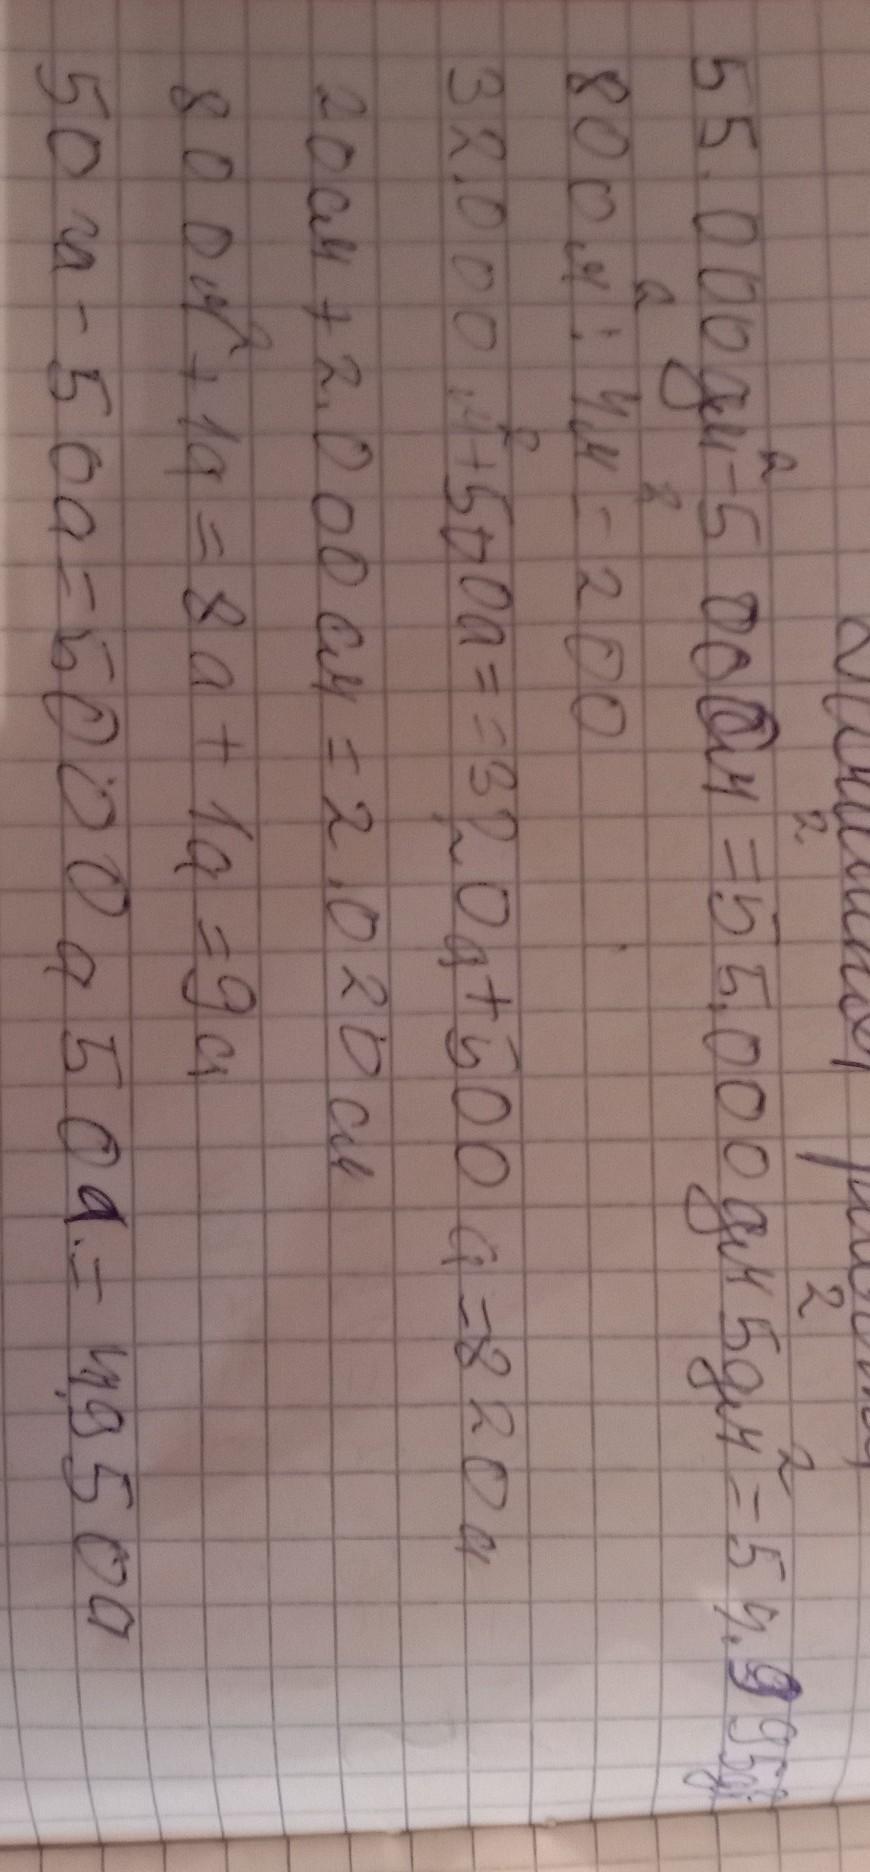 55.000дм²-500см²=55.000дм²5дм²=54.995д
800м²:4м²=200
32.000м²+500а==320а+500а=820а
20см+2.000см=2.020см
800м²+1а=8а+1а=9а
50га-50а=5000а50а.=4,950а